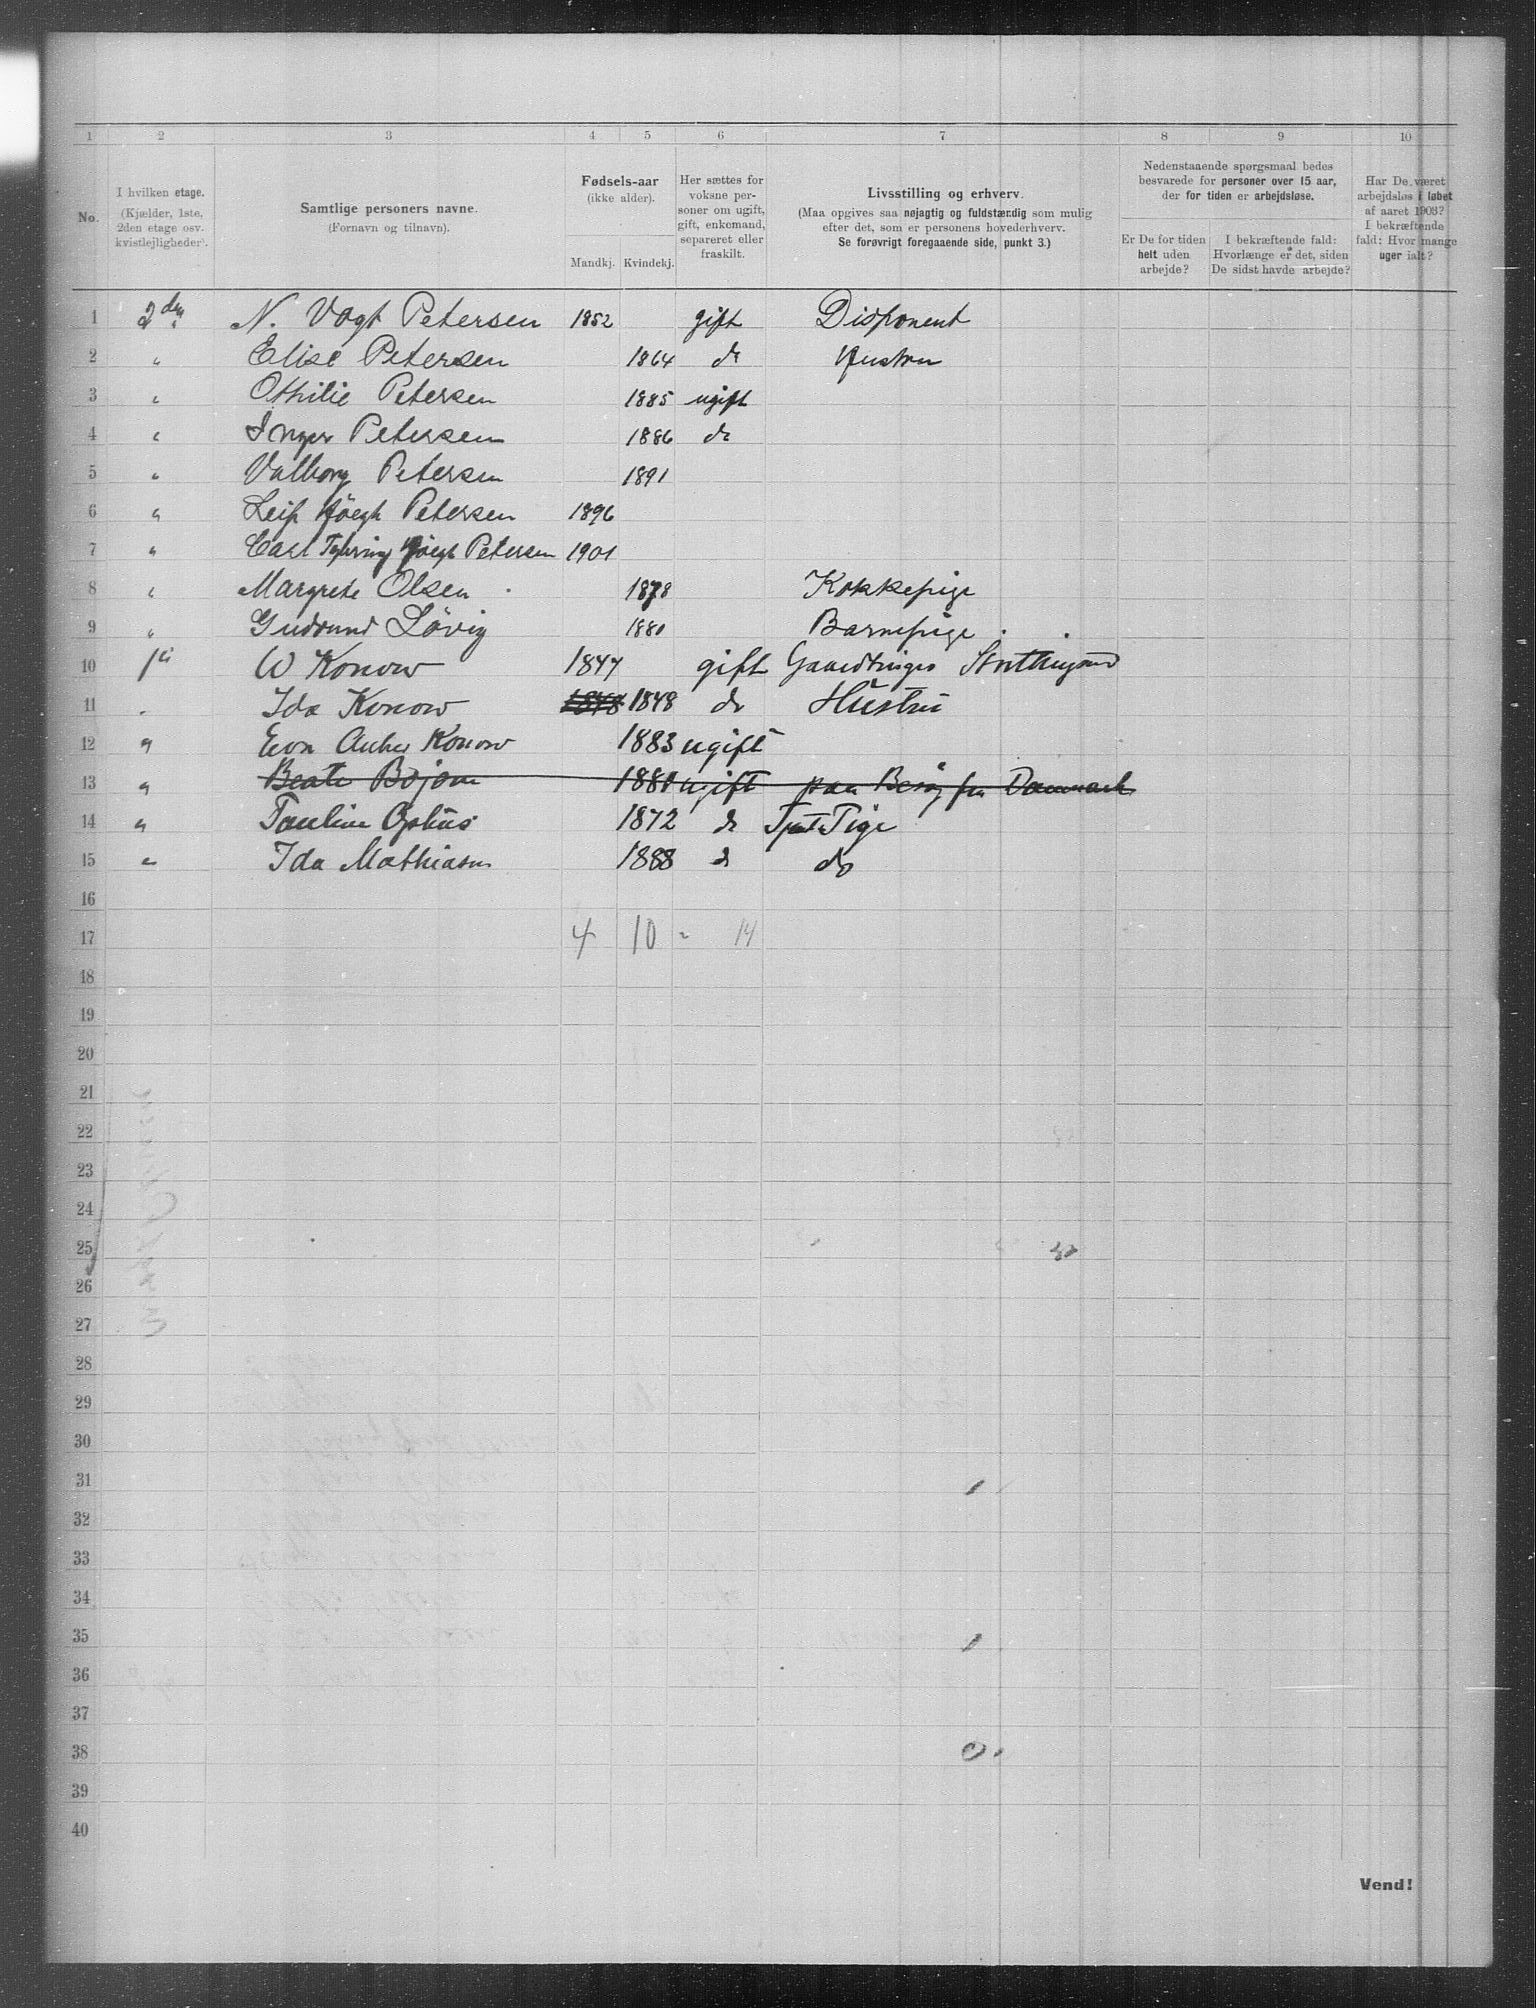 1 2 3 4 5 6 7 8 9 10
No.
I hvilken etage.
(Kjælder, 1ste,
2den etage osv.
kvistlejligheder).
Samtlige personers navne.
(Fornavn og tilnavn).
Fødsels-aar
(ikke alder).
Mandkj. Kvindekj.
Her sættes for
voksne per-
soner om ugift,
gift, enkemand,
separeret eller
fraskilt.
Livsstilling og erhverv.
(Maa opgives saa nøjagtig og fuldstændig som mulig
efter det, som er personens hovederhverv.
Se forøvrigt foregaaende side, punkt 3.)
Nedenstaaende spørgsmaal bedes
besvarede for personer over 15 aar,
der for tiden er arbejdsløse.
Er De for tiden
helt uden
arbejde?
I bekræftende fald:
Hvorlænge er det, siden
De sidst havde arbejde?
Har De været
arbejdsløs i løbet
af aaret 1903?
I bekræftende
fald: Hvor mange
uger ialt?
1 2den N. Vogt Petersen 1852 gift Disponent
2 " Elise Petersen 1864 do Hustru
3 " Othilie Petersen 1885 ugift
4 " Inger Petersen 1886 do
5 " Valborg Petersen 1891
6 " Leif Høegh Petersen 1896
7 " Carl Høegh Petersen 1901
8 " Margrete Olsen 1878 Kokkepige
9 " Gudrund Løvig 1880 Barnepige
10 W Konow 1847 gift
11 " Ida Konow 1848 1848 do Hustru
12 " Konow 1883 ugift
13 " Beate Bojom 1880 ugift paa Besøg fra Danmark
14 " Pauline Ophus 1872 do Pige
15 " Ida Mathiasen 1888 do do
16
17 4 10 = 14
18
19
20
21
22
23
24
25
26
27
28
29
30
31
32
33
34
35
36
37
38
39
40
Vend!